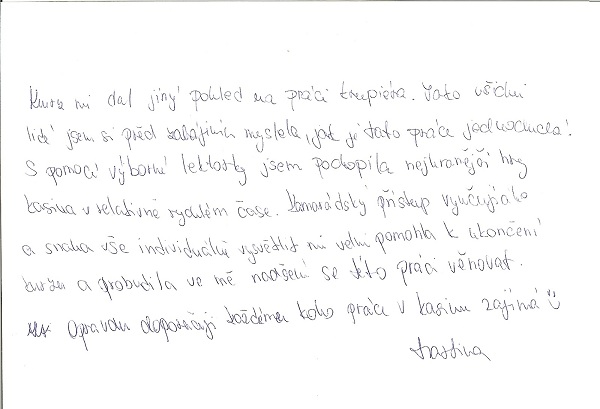 Kurz mi dal jiný pohled na práci krupiéra. Jako všichni
lidé jsem si před zahájením myslela, jak je tato práce jednoduchá!
S pomocí výborné lektorky jsem pochopila nejhranější hry
kasina v relativně rychlém čase. Kamarádský přístup vyučujícího
a snaha vše individuálně vysvětlit mi velmi pomohla k ukončení
kurzu a probudila ve mě nadšení se této práci věnovat.
Opravdu doporučuji každému koho práce v kasinu zajímá